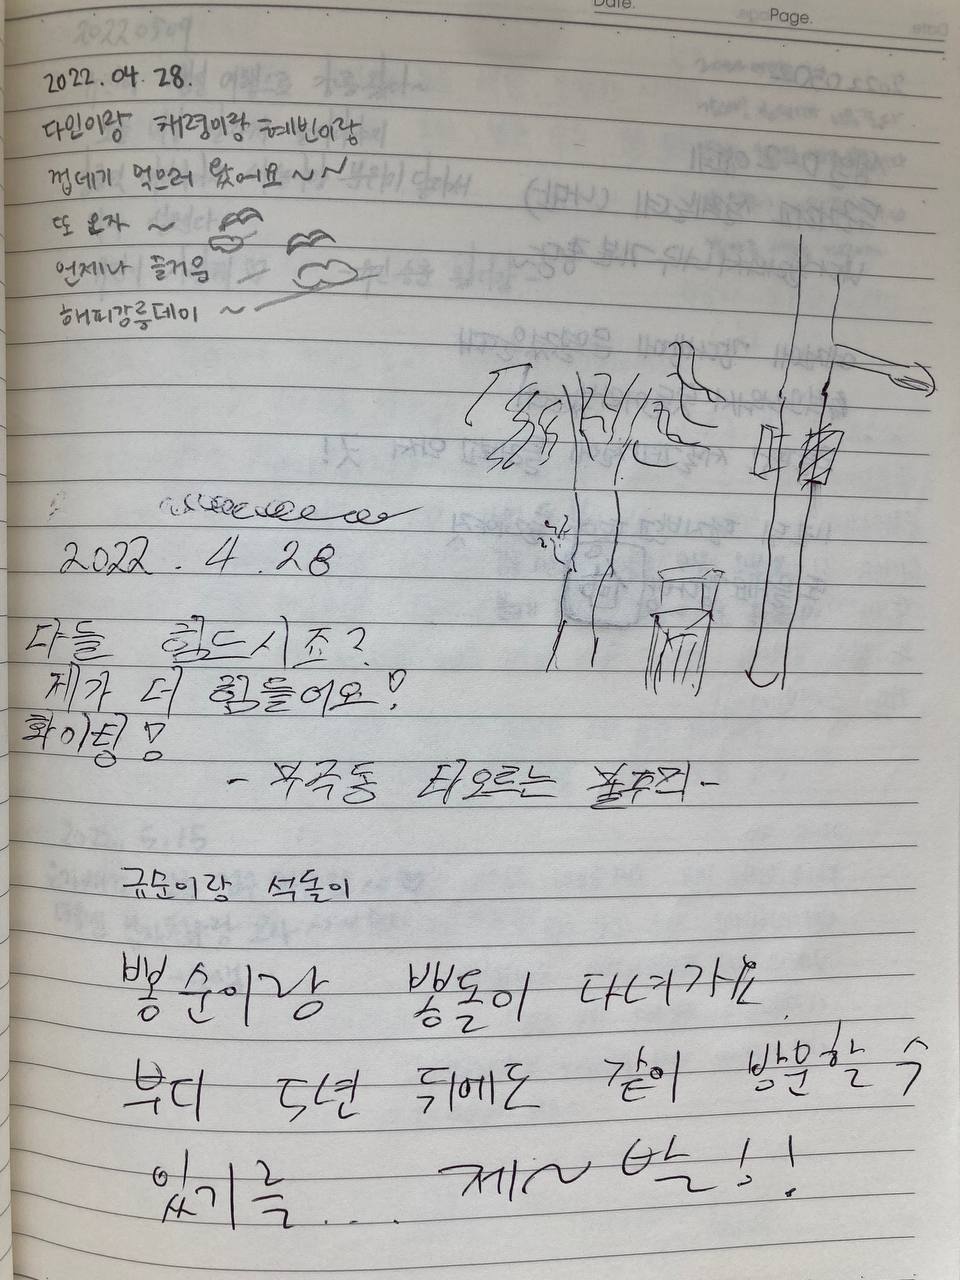 Date.
Page.
2022. 04. 28.
다인이랑 채령이랑 혜빈이랑
껍데기 먹으러 왔어요~~
또 오자 ~
언제나 즐거움
해피강릉데이 ~
2022 . 4 . 28
다들 힘드시죠?
제가 더 힘들어요!
화이팅!
- 부곡동 타오르는 -
규순이랑 석돌이
뽕순이랑 뽕돌이 다녀가요.
부디 5년 뒤에도 같이 방문할 수
있기를.... 제~발!!